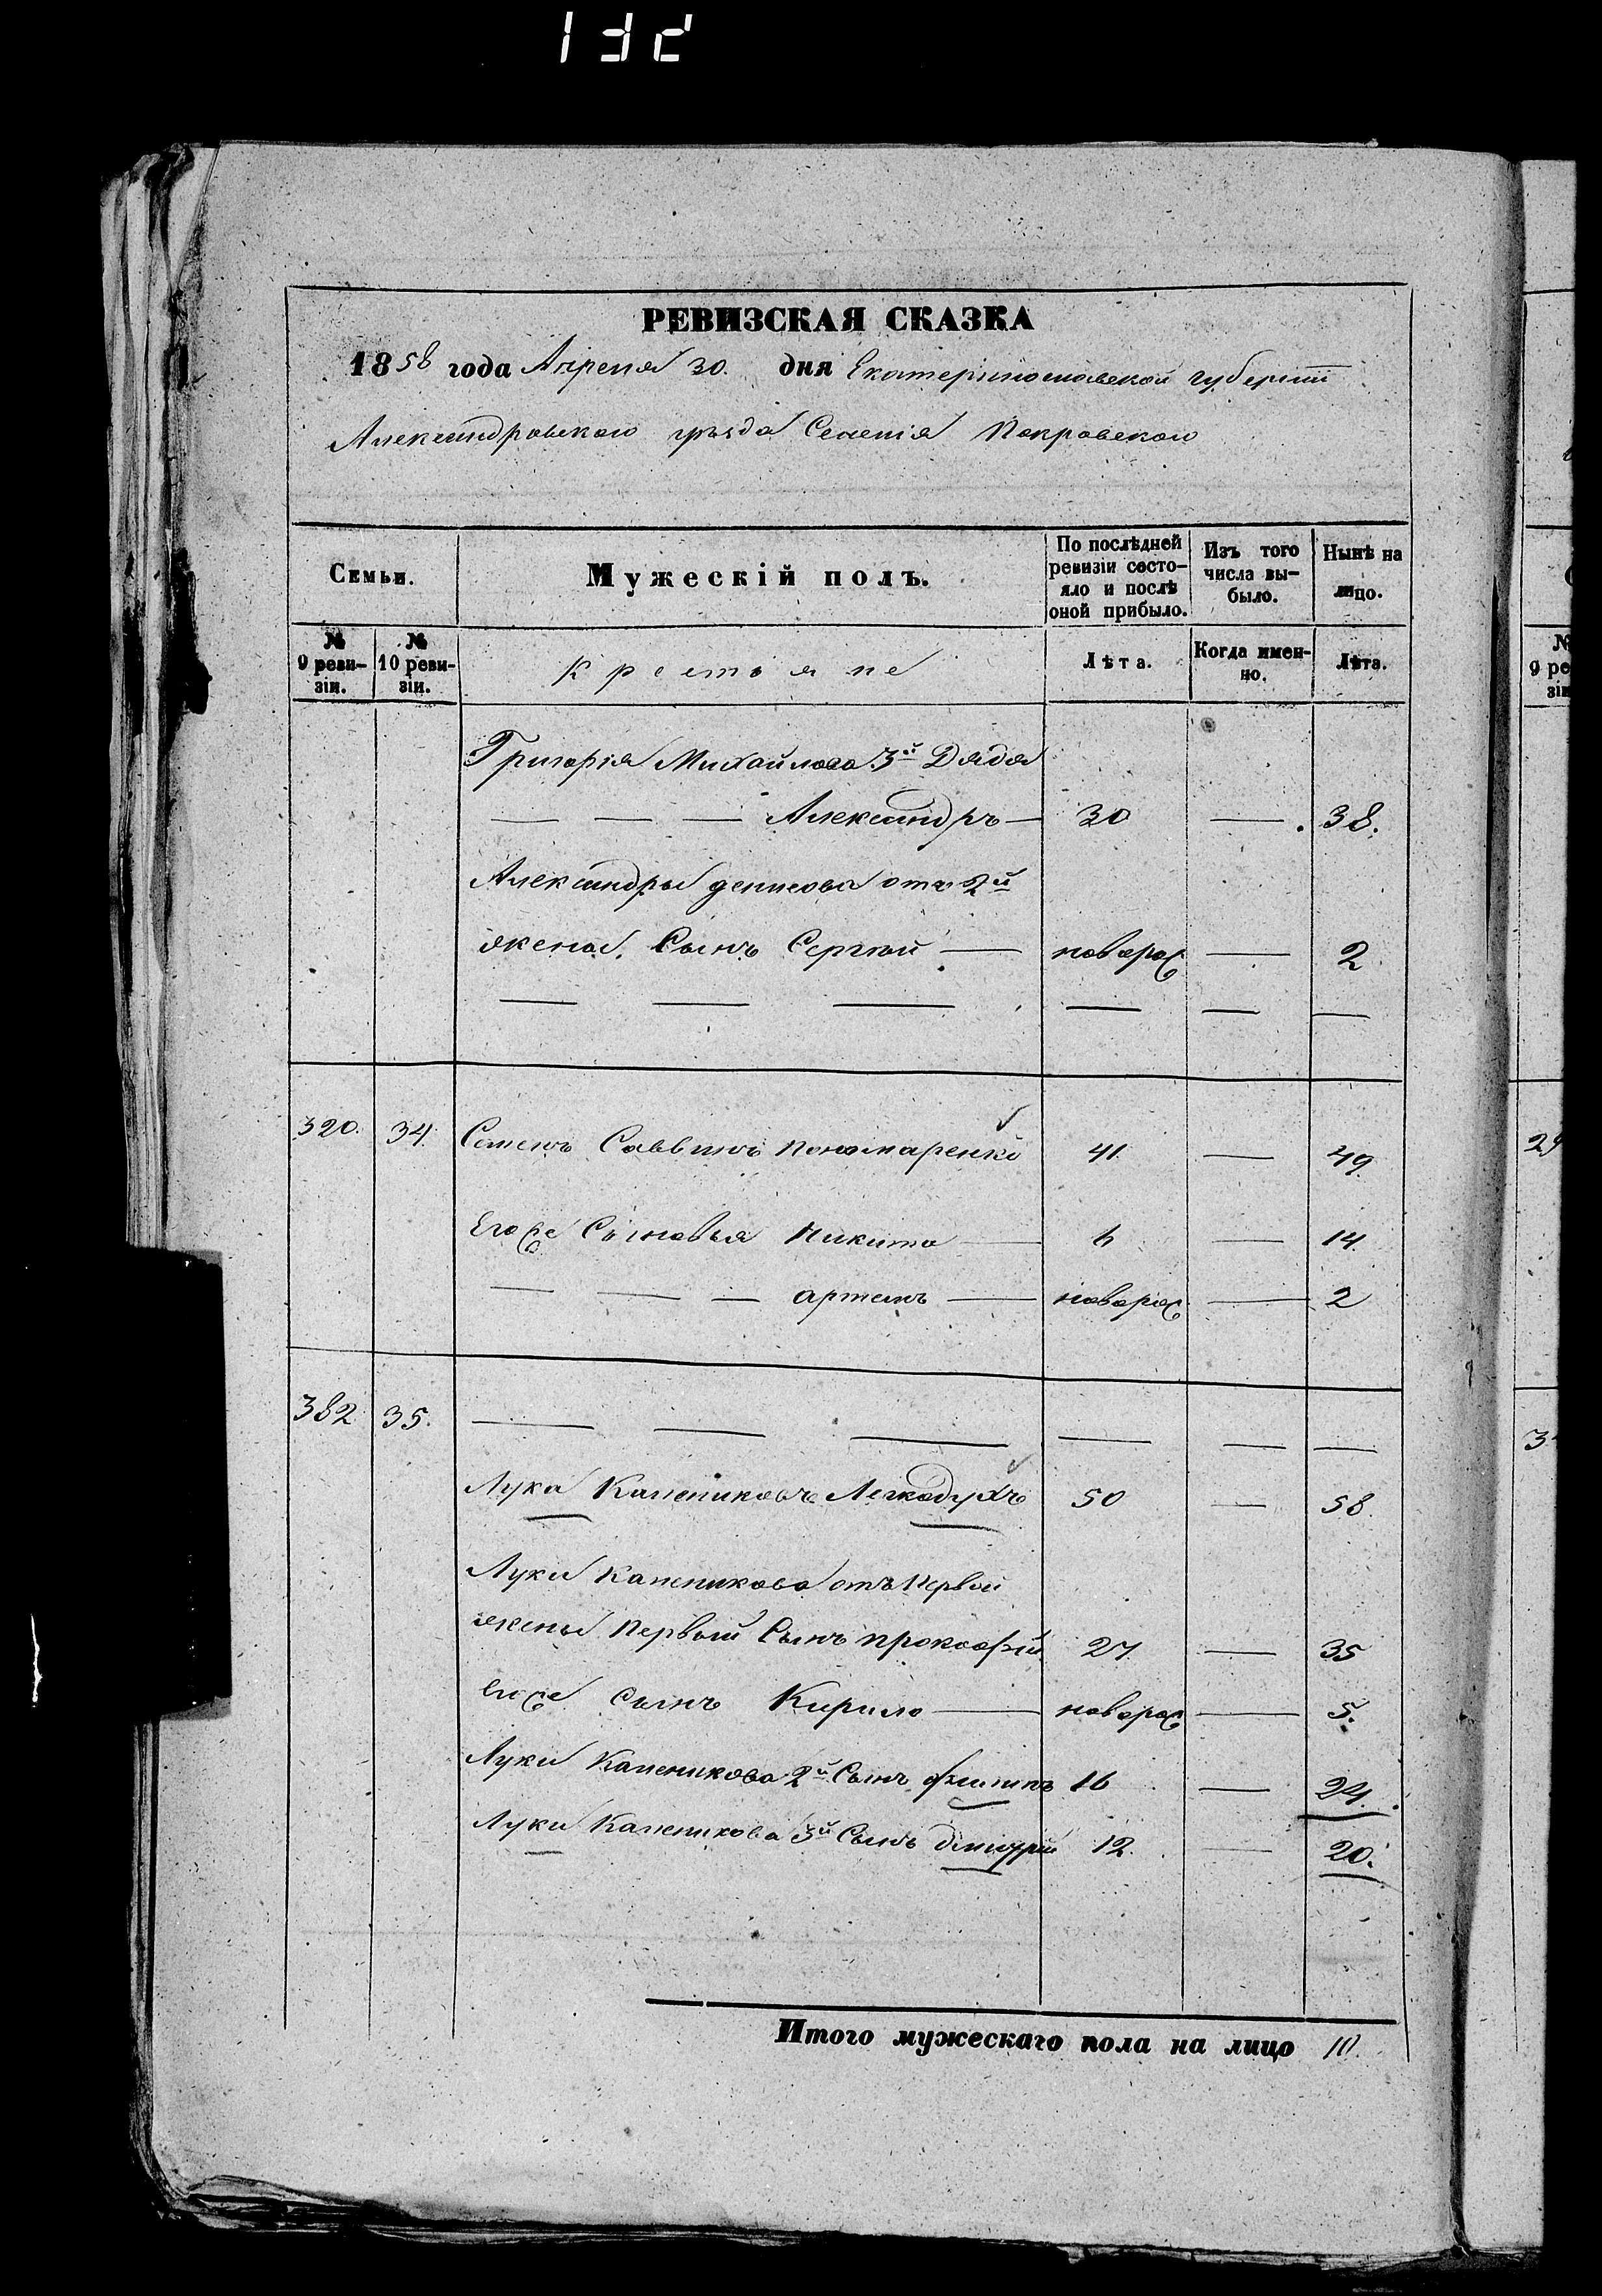 132
РЕВИЗСКАЯ СКАЗКА
1858 года Апреля 30. дня Екатеринославской губернiи
Александровского уѣзда Селенiя Покровского
Семьи. Мужескiй полъ. По послѣдней ревизiи состояло и послѣ оной прибыло. Изъ того числа выбыло. Нынѣ на лицо.
№ 9 ревизiи. № 10 ревизiи. Крестьяне Лѣта. Когда именно. Лѣта.
Григорiя Михайлова 3й Дядя
— — — Александръ — 30 — 38.
Александры денисова отъ 2й
жены. Сынъ Сергѣй — новорож — 2
— — — — — —
320. 34. Семенъ Саввинъ Пономаренко 41 — 49
Егоже Сыновья Никита — 6 — 14.
— — — артемъ — новорож — 2
382 35. — — — — — —
Лука Калениковъ Легкодухъ 50 — 58.
Луки Каленикова отъ Первой
жены Первый Сынъ прокофiй 27 — 35
Егоже Сынъ Кирило — новорож — 5.
Луки Каленикова 2й Сынъ филипъ 16 — 24.
Луки Каленикова 3й Сынъ дмитрiй 12. — 20.
Итого мужескаго пола на лицо 10.